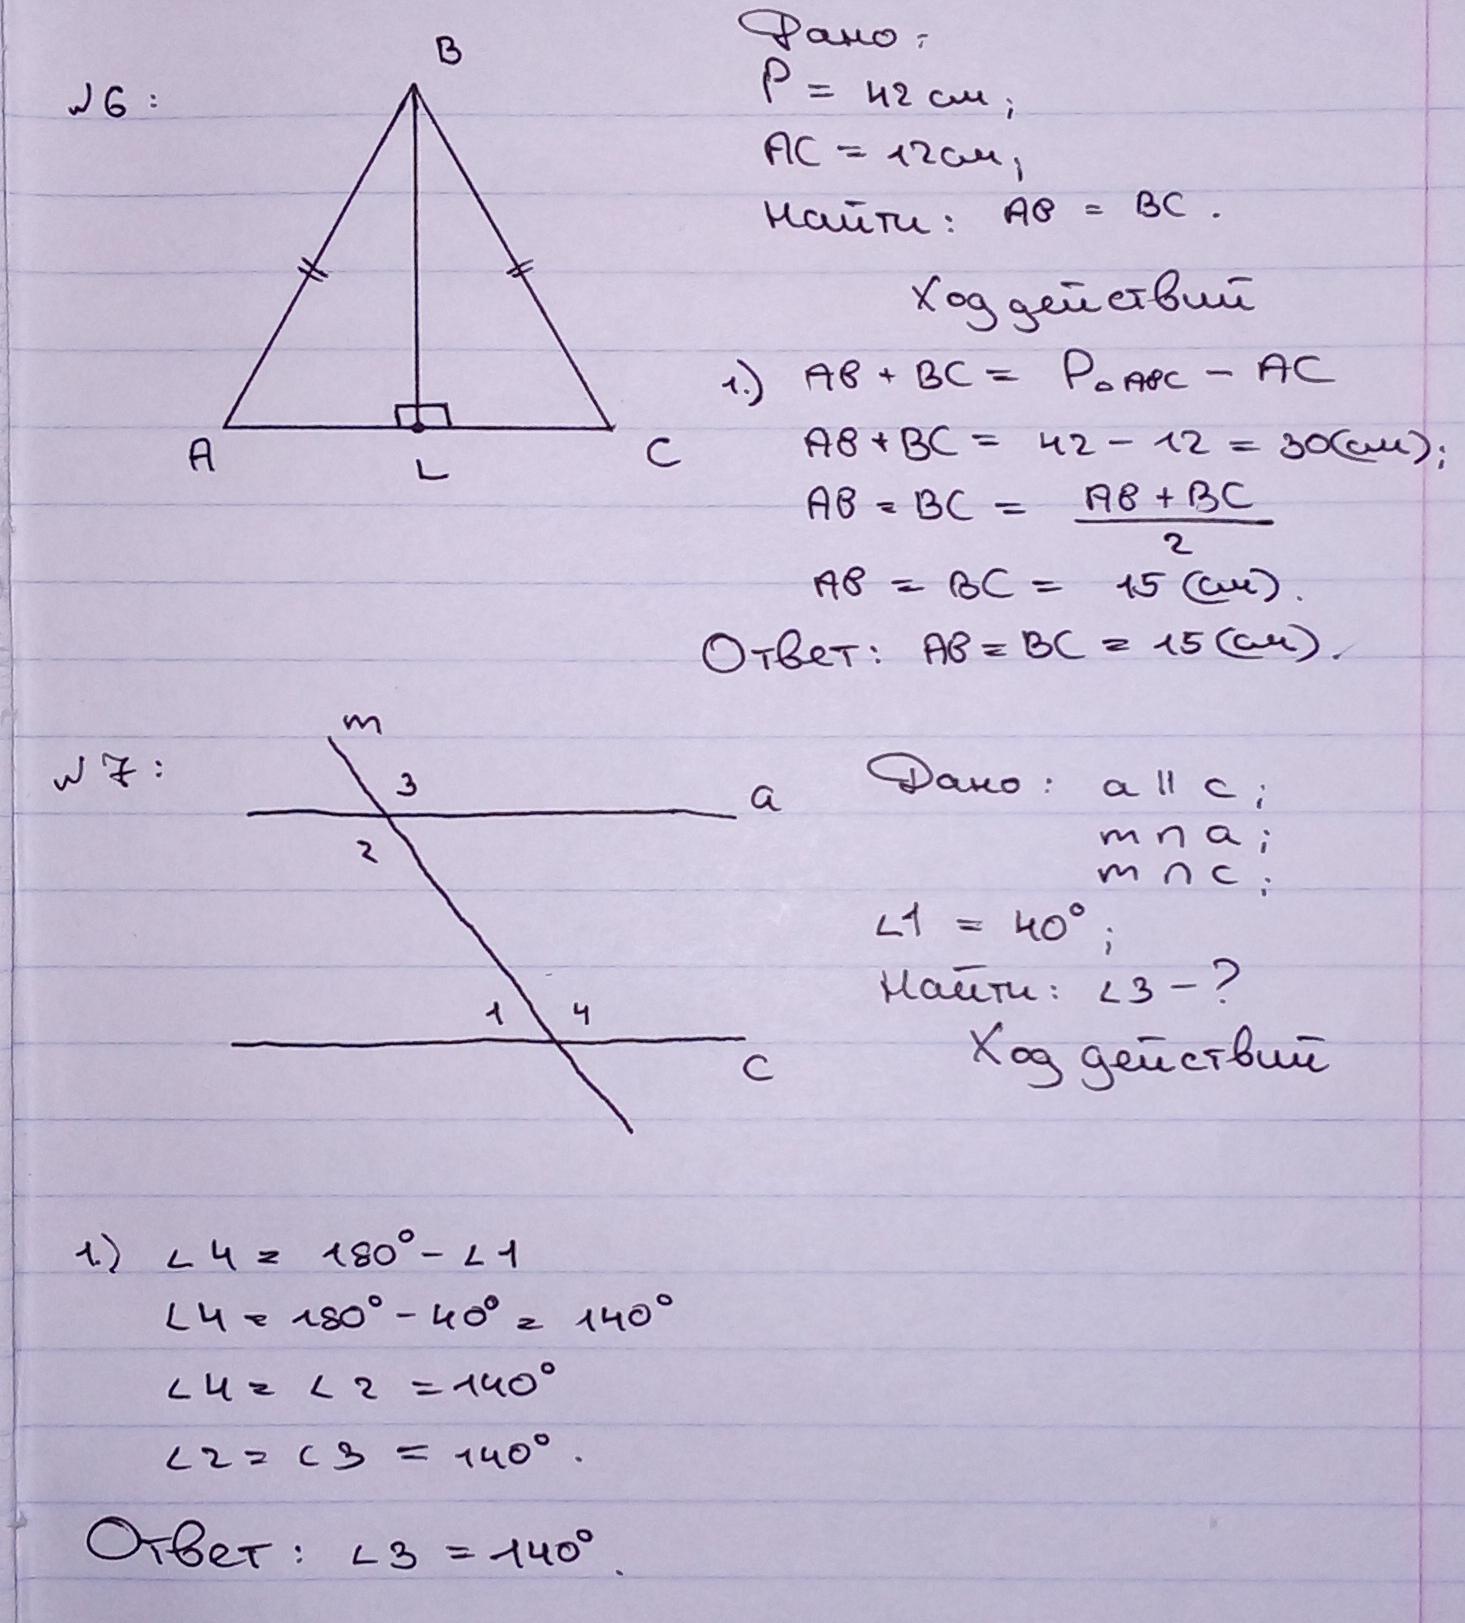 №6:
B
A
L
C
Дано:
P = 42 см;
AC = 12 см;
Найти: AB = BC.
Ход действий
1.) AB + BC = P△ABC − AC
AB + BC = 42 − 12 = 30(см);
AB = BC = (AB + BC)/2
AB = BC = 15 (см).
Ответ: AB = BC = 15 (см).
№7:
m
3
a
2
1 4
c
Дано: a ∥ c;
m ∩ a;
m ∩ c;
∠1 = 40°;
Найти: ∠3 − ?
Ход действий
1.) ∠4 = 180° − ∠1
∠4 = 180° − 40° = 140°
∠4 = ∠2 = 140°
∠2 = ∠3 = 140°.
Ответ: ∠3 = 140°.